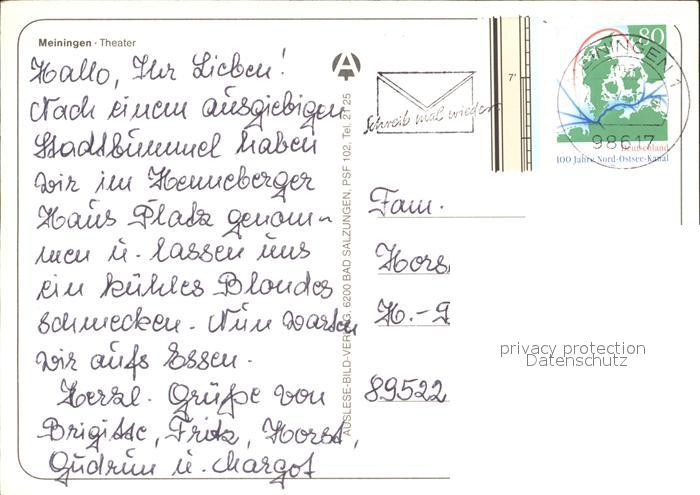 Meiningen · Theater
Hallo, Ihr Lieben!
Nach einem ausgiebigen
Stadtbummel haben
wir im Henneberger
Haus Platz genom-
men u. lassen uns
ein kühles Blondes
schmecken. Nun warten
wir aufs Essen.
Herzl. Grüße von
Brigitte, Fritz, Horst,
Gudrun u. Margot
AUSLESE-BILD-VERLAG, 6200 BAD SALZUNGEN, PSF 102, Tel. 21 25
A
Schreib mal wieder
7'
80
MEININGEN 1
98617
Deutschland
100 Jahre Nord-Ostsee-Kanal
Fam.
Hors
H.-
89522
privacy protection
Datenschutz